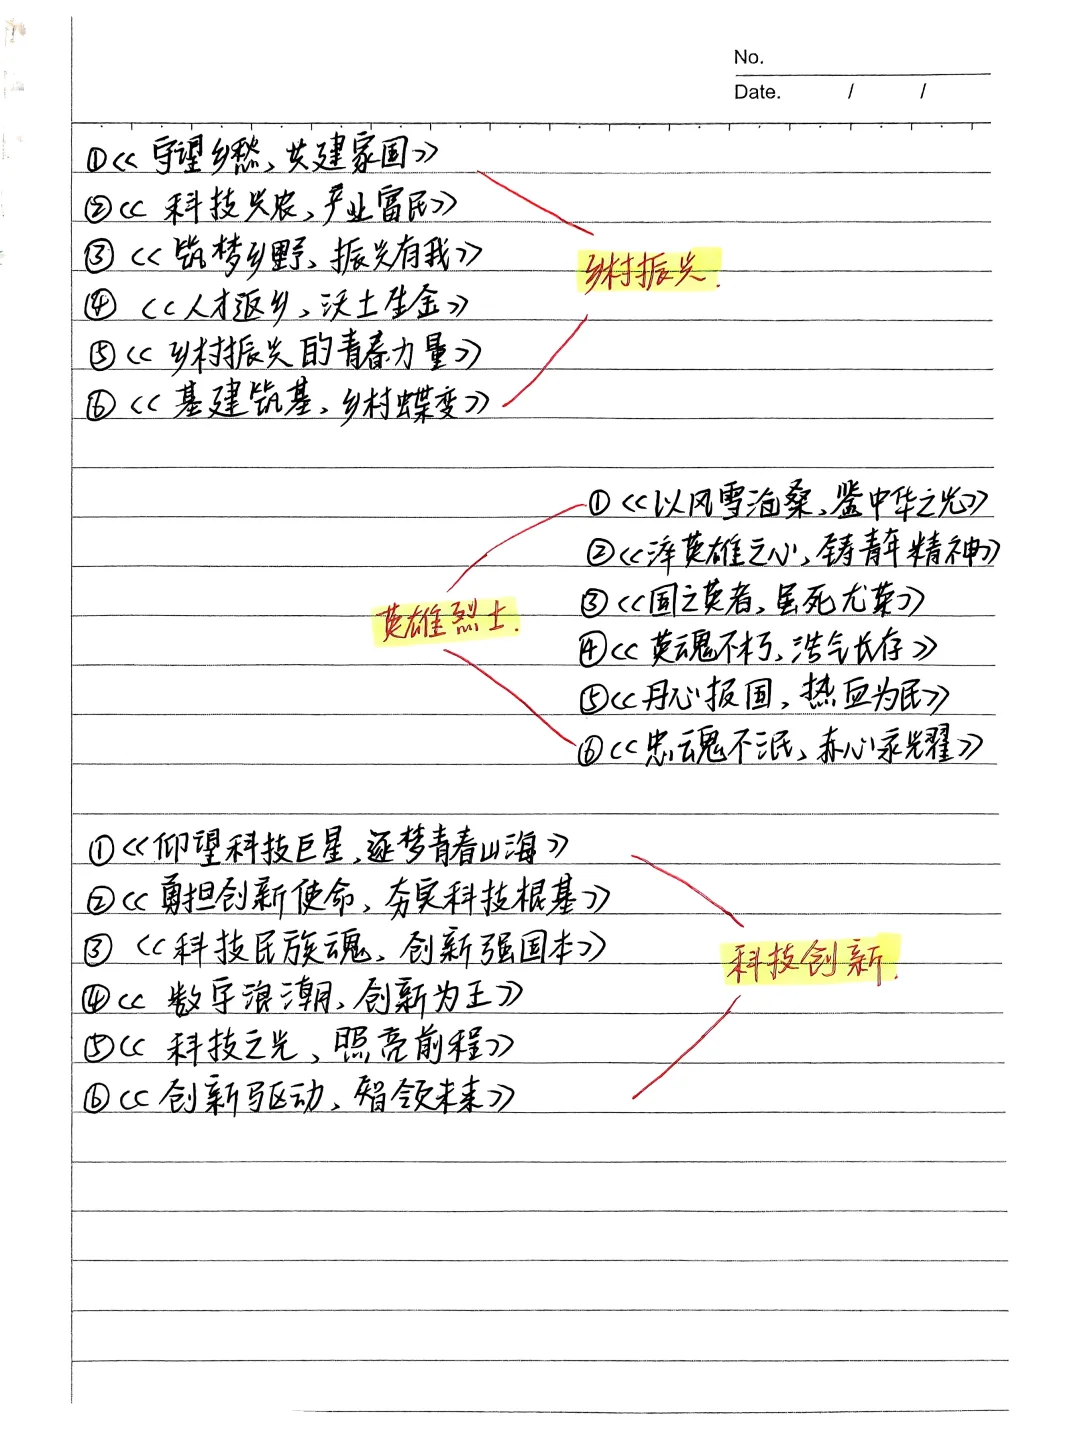 No.
Date. / /
①《守望乡愁、共建家国》
②《科技兴农、产业富民》
③《筑梦乡野、振兴有我》
乡村振兴.
④《人才返乡、沃土生金》
⑤《乡村振兴的青春力量》
⑥《基建筑基、乡村蝶变》
①《以风雪沧桑、鉴中华之光》
②《淬英雄之心、铸青年精神》
③《国之英者、虽死尤荣》
英雄烈士.
④《英魂不朽、浩气长存》
⑤《丹心报国、热血为民》
⑥《忠魂不泯、赤心永耀》
①《仰望科技巨星、逐梦青春山海》
②《勇担创新使命、夯实科技根基》
③《科技民族魂、创新强国本》
科技创新.
④《数字浪潮、创新为王》
⑤《科技之光、照亮前程》
⑥《创新驱动、智领未来》